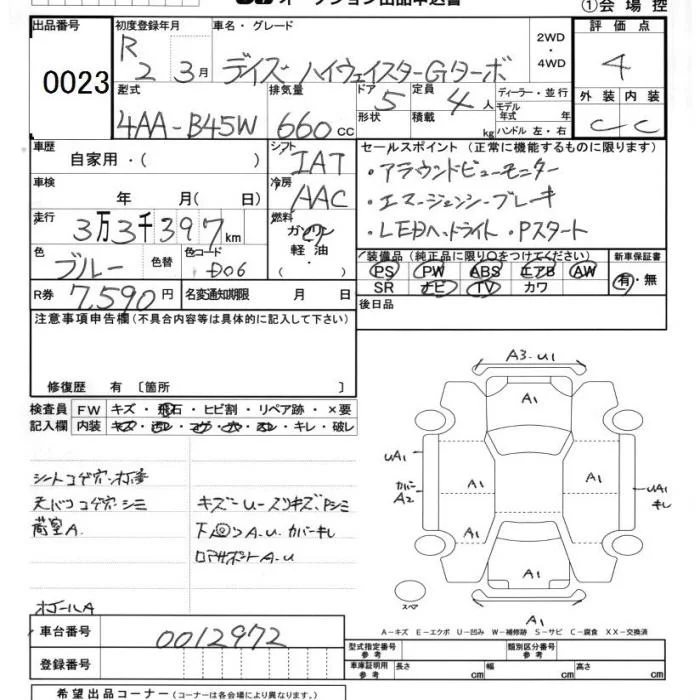 オークション出品申込書
①会場控
出品番号
0023
初度登録年月
R 2 3月
車名・グレード
デイズ ハイウェイスターGターボ
2WD
・
4WD
評価点
4
型式
4AA-B45W
排気量
660cc
ドア
5
形状
定員
4人
積載
kg
ディーラー・並行
モデル
年式 年
ハンドル 左・右
外装 内装
C C
車歴
自家用・( )
シフト
IAT
セールスポイント (正常に機能するものに限ります)
・アラウンドビューモニター
・エマージェンシーブレーキ
・LEDヘッドライト・Pスタート
車検
年 月( 日)
冷房
AAC
走行
3万3千397km
燃料
ガソリン
軽油
・( )
色
ブルー
色替
色コード
D06
装備品(純正品に限り○をつけてください)
PS PW ABS エアB AW
SR ナビ TV カワ
新車保証書
有・無
R券 7,590円
名変通知期限 月 日
後日品
注意事項申告欄(不具合内容等は具体的に記入して下さい)
修復歴 有 〔箇所 〕
検査員
記入欄
FW キズ・飛石・ヒビ割・リペア跡・×要
内装 キズ・汚レ・コゲ・穴・スレ・キレ・破レ
シートコゲ穴・
天バリコゲ穴・シミ
荷室A
キズ〜U
A・U・カバーキレ
ロアサポートA・U
ホイールA
A3・U1
A1
UA1
カバー
A2
A1
A1
A1
UA1
キレ
A1
スペア
A1
A-キズ E-エクボ U-凹み W-補修跡 S-サビ C-腐食 XX-交換済
車台番号
0012972
登録番号
型式指定番号
参考
類別区分番号
参考
車庫証明用
参考
長さ cm 幅 cm 高さ cm
希望出品コーナー(コーナーは各会場により異なります。)